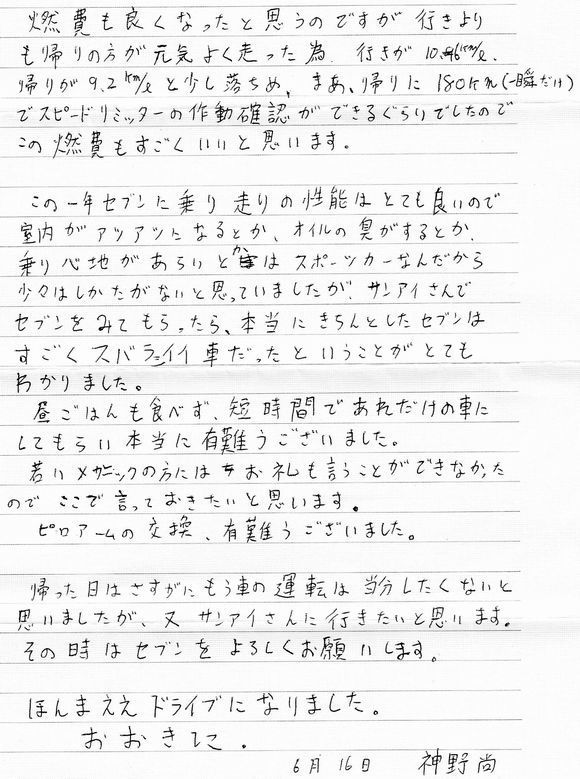 燃費も良くなったと思うのですが行きより
も帰りの方が元気よく走った為、行きが10.46km/ℓ、
帰りが9.2km/ℓと少し落ちめ、まあ、帰りに180km(一瞬だけ)
でスピードリミッターの作動確認ができるぐらいでしたので
この燃費もすごくいいと思います。
この一年セブンに乗り走りの性能はとても良いので
室内がアツアツになるとか、オイルの臭がするとか、
乗り心地があらいとかはスポーツカーなんだから
少々はしかたがないと思っていましたが、サンアイさんで
セブンをみてもらったら、本当にきちんとしたセブンは
すごくスバラシイイ車だったということがとても
わかりました。
昼ごはんも食べず、短時間であれだけの車に
してもらい本当に有難うございました。
若いメカニックの方にはお礼も言うことができなかった
のでここで言っておきたいと思います。
ピロアームの交換、有難うございました。
帰った日はさすがにもう車の運転は当分したくないと
思いましたが、又サンアイさんに行きたいと思います。
その時はセブンをよろしくお願いします。
ほんまええドライブになりました。
おおきに。
6月16日 神野尚